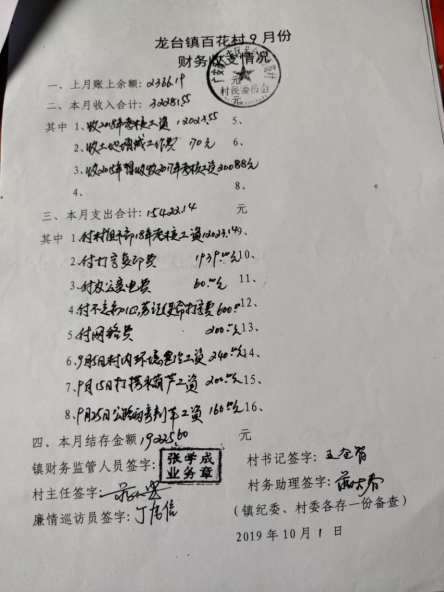 龙台镇百花村9月份
财务收支情况
一、上月账上余额:2366.19 元
村民委员会
二、本月收入合计:32281.55 元
其中 1、收2018年考核工资 12023.55 5、
2、收土地增减工作费 170元 6、
3、收2018年 收2017年考核工资20088元 7、
4、 8、
三、本月支出合计:15422.14 元
其中 1、付村组干部18年考核工资12023.14 9、
2、付打字复印费 1939.00元 10、
3、付办公室电费 60.00元 11、
4、付不忘初心 600.00 12、
5、付网络费 200.00元 13、
6、9月5日村内环境 工资 240.00元 14、
7、9月15日打捞水葫芦工资 200.00元 15、
8、9月25日公路两旁割草工资 160.00元 16、
四、本月结存金额19225.60 元
镇财务监管人员签字: 张学成
业务章
村书记签字:
村主任签字: 村务助理签字:
廉情巡访员签字:丁 信 (镇纪委、村委各存一份备查)
2019年10月1日